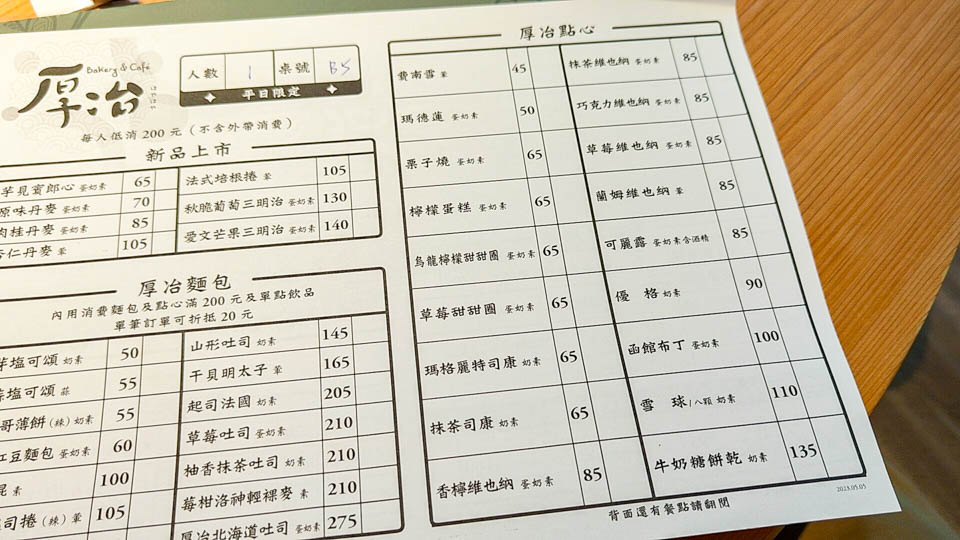 Bakery & Café
厚冶
人數 1 桌號 B5
平日限定
每人低消 200 元(不含外帶消費)
新品上市
芋見賓郎心 蛋奶素 65
原味丹麥 蛋奶素 70
肉桂丹麥 蛋奶素 85
杏仁丹麥 葷 105
法式培根捲 葷 105
秋脆葡萄三明治 蛋奶素 130
愛文芒果三明治 蛋奶素 140
厚冶麵包
內用消費麵包及點心滿 200 元及單點飲品
單筆訂單可折抵 20 元
塩可頌 奶素 50
塩可頌 蒜 55
哥薄餅(辣) 奶素 55
紅豆麵包 蛋奶素 60
素 100
司捲(辣) 葷 105
山形吐司 奶素 145
干貝明太子 葷 165
起司法國 奶素 205
草莓吐司 蛋奶素 210
柚香抹茶吐司 奶素 210
莓柑洛神輕裸麥 素 210
厚冶北海道吐司 蛋奶素 275
厚冶點心
費南雪 葷 45
瑪德蓮 蛋奶素 50
栗子燒 蛋奶素 65
檸檬蛋糕 蛋奶素 65
烏龍檸檬甜甜圈 蛋奶素 65
草莓甜甜圈 蛋奶素 65
瑪格麗特司康 奶素 65
抹茶司康 奶素 65
香檸維也納 蛋奶素 85
抹茶維也納 蛋奶素 85
巧克力維也納 蛋奶素 85
草莓維也納 蛋奶素 85
蘭姆維也納 葷 85
可麗露 蛋奶素含酒精 85
優格 奶素 90
函館布丁 蛋奶素 100
雪球/八顆 奶素 110
牛奶糖餅乾 奶素 135
2023.05.05
背面還有餐點請翻閱